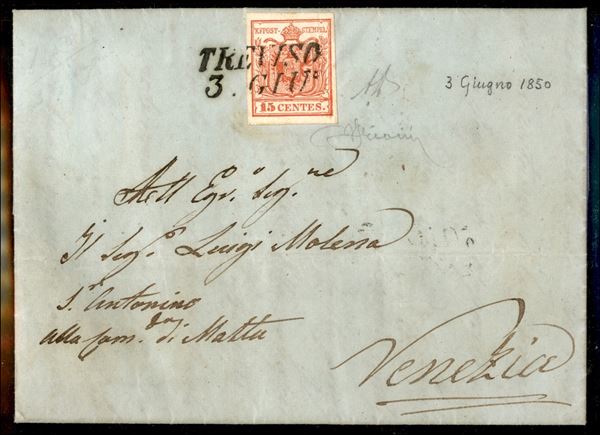 K.K.POST-STEMPEL
TREVISO
3. GIU:
15 CENTES.
3 Giugno 1850
All Egr.º Sig.ne
Il Sig.r Luigi Molena
S. Antonino
alla fam.
di Matta
Venezia